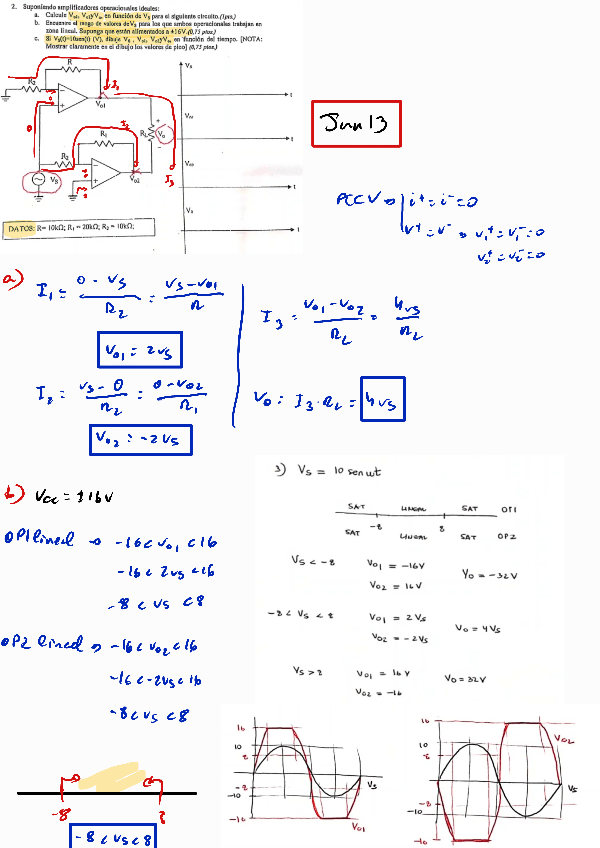 2. Suponiendo amplificadores operacionales ideales:
a. Calcule Vo1, Vo2 y Vo, en función de VS para el siguiente circuito. (1pto.)
b. Encuentre el rango de valores de VS para los que ambos operacionales trabajan en
zona lineal. Suponga que están alimentados a ±16V. (0,75 ptos.)
c. Si VS(t)=10sen(t) (V), dibuje VS, Vo1, Vo2 y Vo, en función del tiempo. [NOTA:
Mostrar claramente en el dibujo los valores de pico] (0,75 ptos.)
R
R2
I1
Vo1
R1
I2
R2
RL
Vo
Vo2
VS
I3
t
t
t
t
DATOS: R= 10kΩ; R1 = 20kΩ; R2 = 10kΩ;
Jun 13
PCCV → i+ = i- = 0
V+ = V- → V1+ = V1- = 0
V2+ = V2- = 0
a)
I1 = 0 - VS / R2 = VS - Vo1 / R
Vo1 = 2VS
I2 = VS - 0 / R2 = 0 - Vo2 / R1
Vo2 = -2VS
I3 = Vo1 - Vo2 / RL = 4VS / RL
Vo = I3 · RL = 4VS
b) Vcc = ±16V
OP1 lineal → -16 < Vo1 < 16
-16 < 2VS < 16
-8 < VS < 8
OP2 lineal → -16 < Vo2 < 16
-16 < -2VS < 16
-8 < VS < 8
-8
8
-8 < VS < 8
3) VS = 10 sen wt
SAT LINEAL SAT OP1
-8 8
SAT LINEAL SAT OP2
VS < -8 Vo1 = -16V
Vo2 = 16V
Vo = -32V
-8 < VS < 8 Vo1 = 2VS
Vo2 = -2VS
Vo = 4VS
VS > 8 Vo1 = 16V
Vo2 = -16
Vo = 32V
16
10
8
-8
-10
-16
VS
Vo1
16
10
8
-8
-10
-16
Vo2
VS